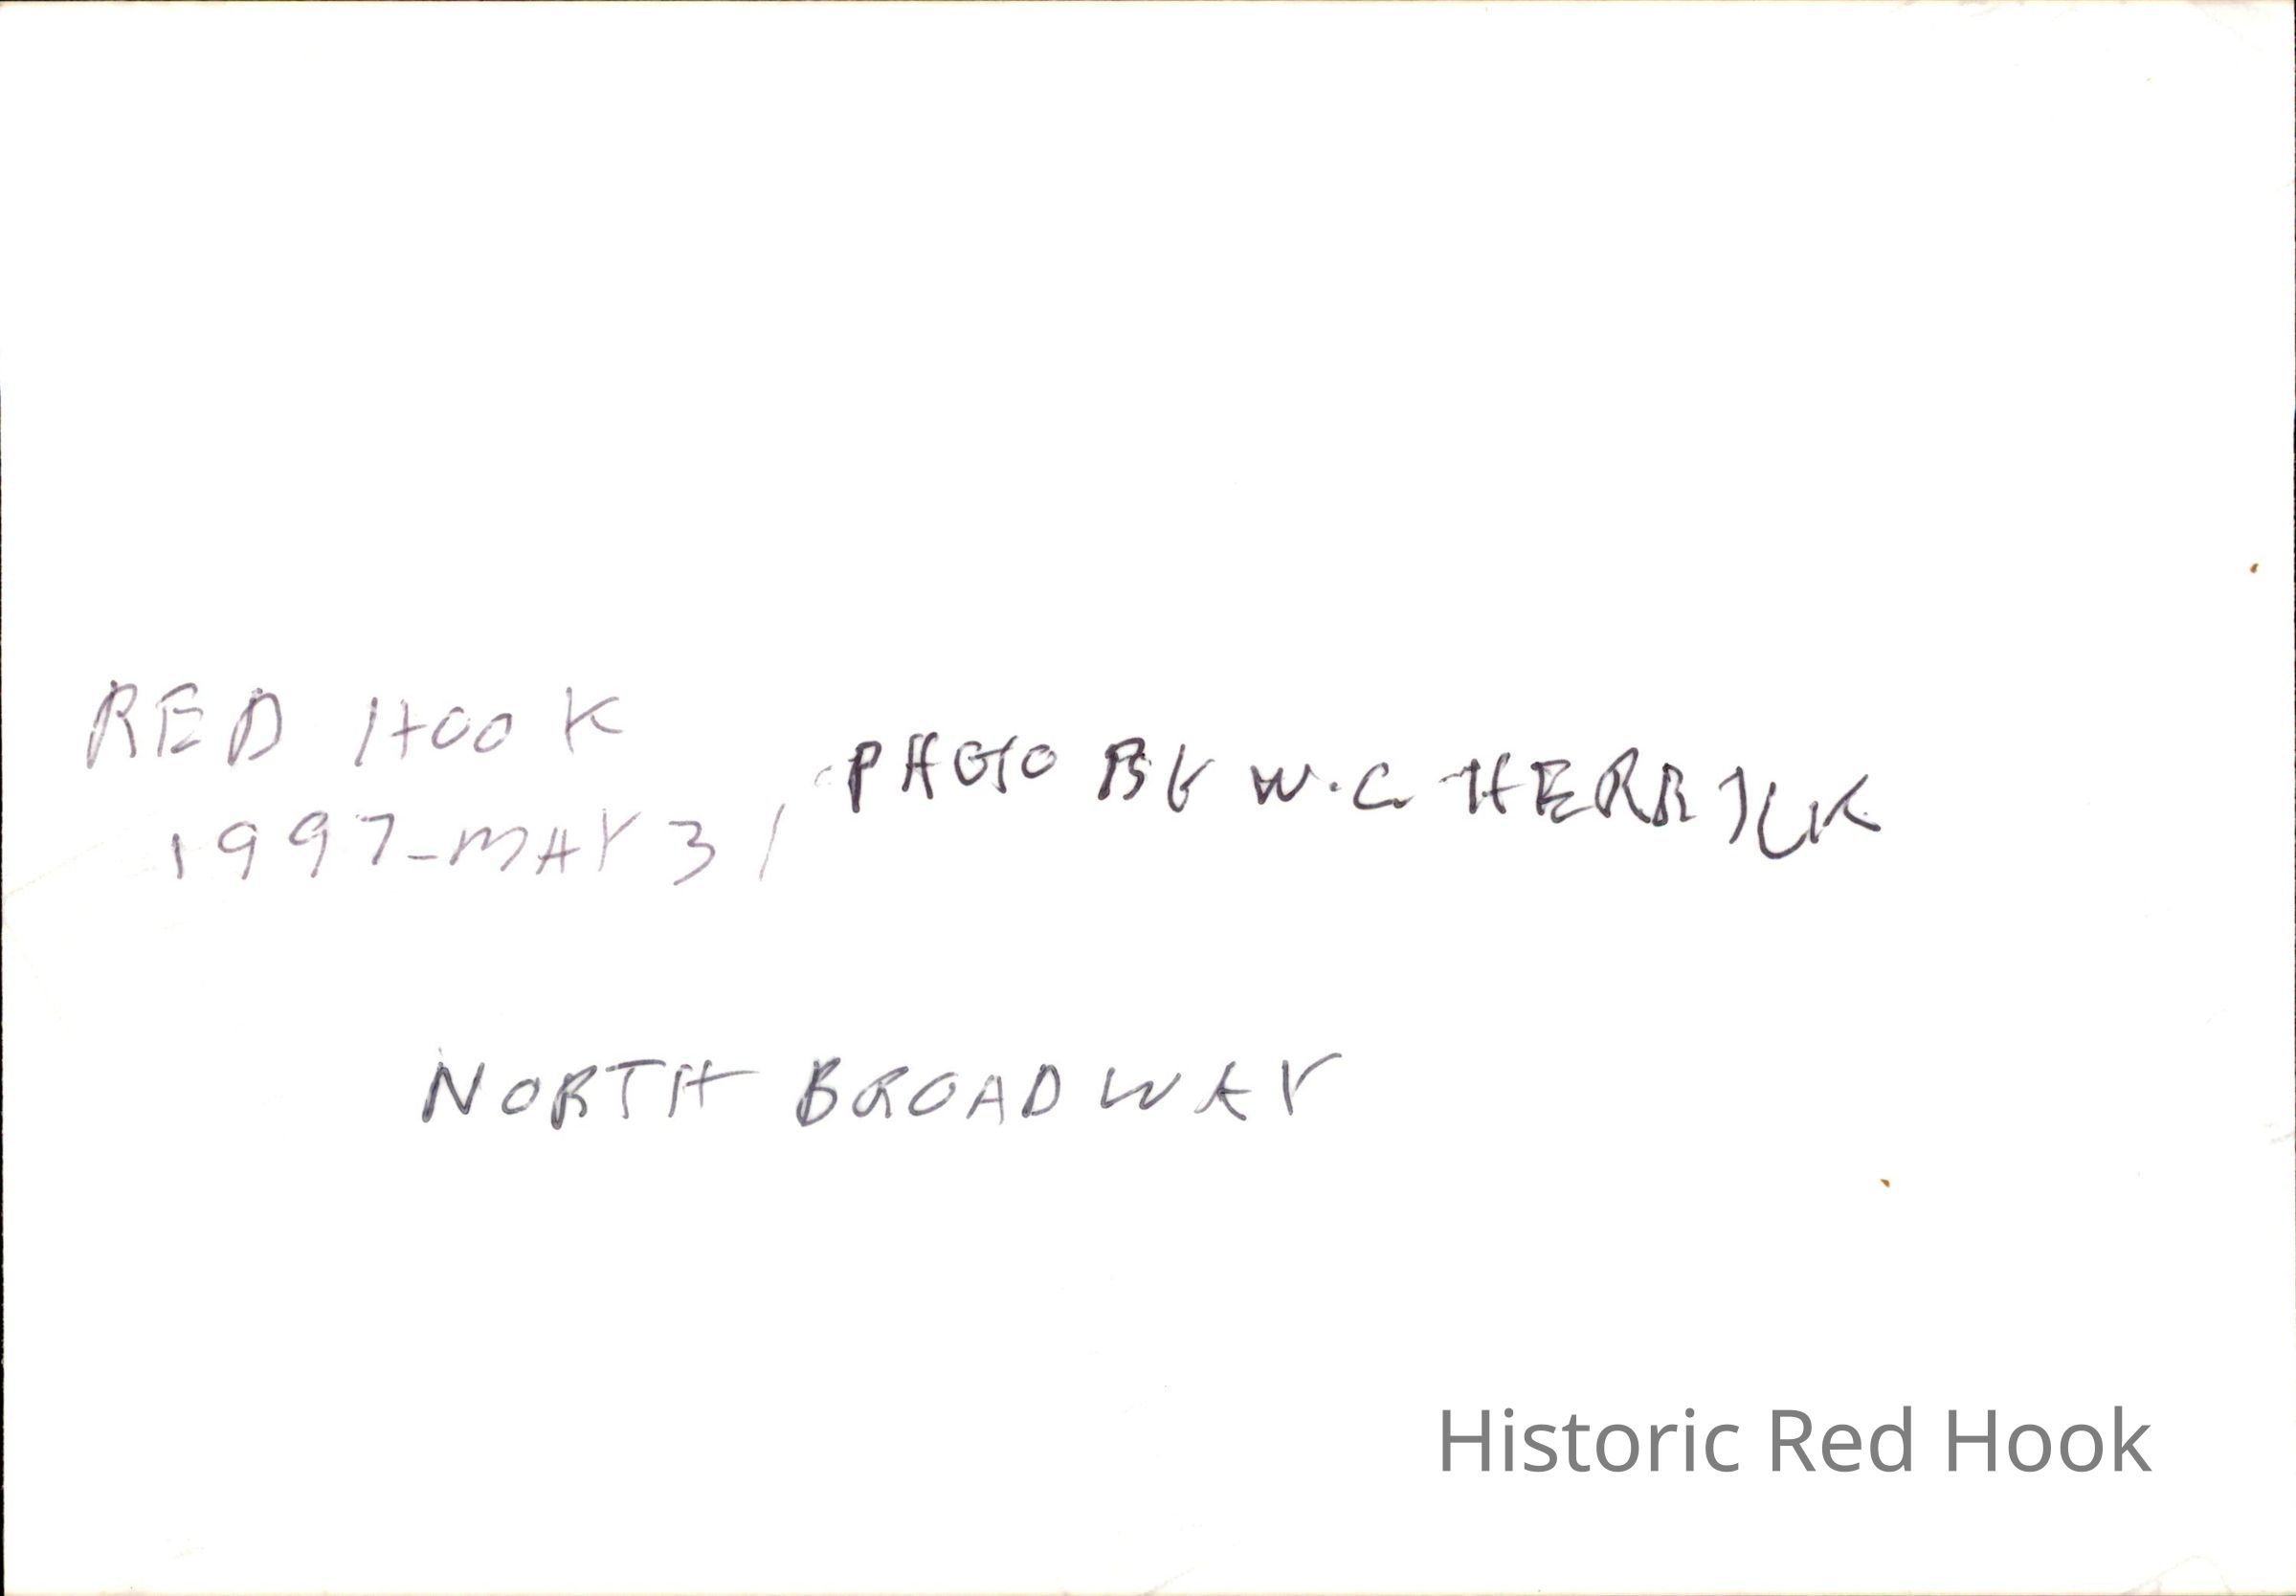 RED HOOK
1997-MAY 31
PHOTO BY W.C. HERRICK
NORTH BROADWAY
Historic Red Hook